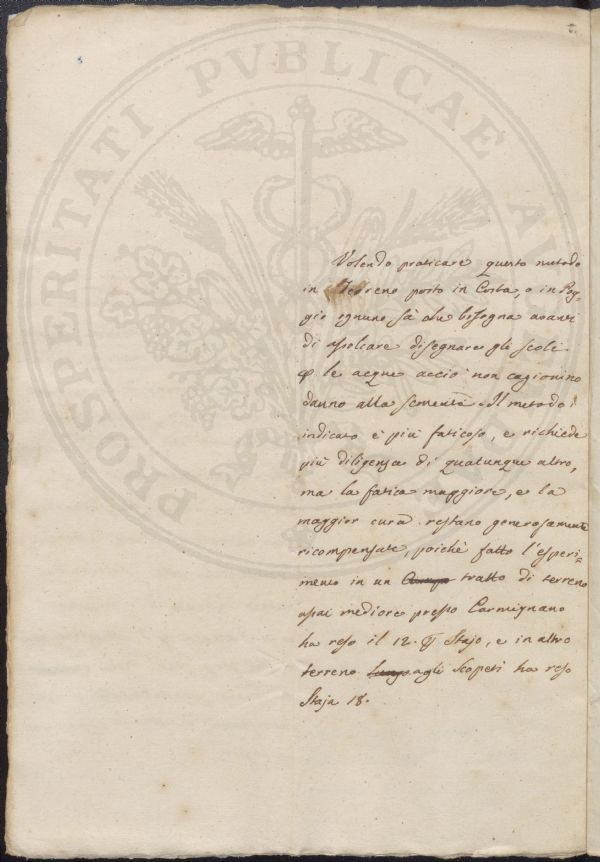 PROSPERITATI PVBLICAE
Volendo praticare questo metodo
in Terreno posto in Costa, o in Pog=
gio ognuno sà che bisogna avanti
di assolcare disegnare gli scoli
p le acque acciò non cagionino
danno alla sementa. Il metodo
indicato è più faticoso, e richiede
più diligenza di qualunque altro,
ma la fatica maggiore, e la
maggior cura restano generosamente
ricompensate, poichè fatto l'esperi=
mento in un tratto di terreno
assai mediocre presso Carmignano
ha reso il 12. p Stajo, e in altro
terreno agli Scopeti ha reso
Staja 18.